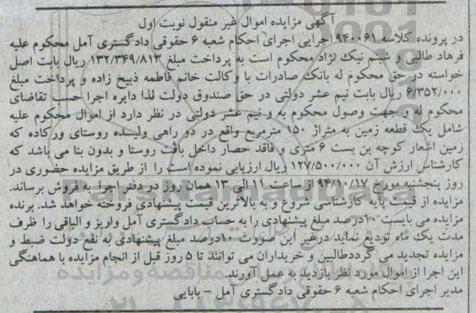 آگهی مزایده اموال غیر منقول نوبت اول
در پرونده کلاسه ۹۴۰۰۶۱ اجرایی اجرای احکام شعبه ۶ حقوقی دادگستری آمل محکوم علیه
فرهاد طالبی و شبنم نیک نژاد محکوم است به پرداخت مبلغ ۱۳۲/۳۴۹/۸۱۳ ریال بابت اصل
خواسته در حق محکوم له بانک صادرات با وکالت خانم فاطمه ذبیح زاده و پرداخت مبلغ
۶/۳۵۲/۰۰۰ ریال بابت نیم عشر دولتی در حق صندوق دولت لذا دایره اجرا حسب تقاضای
محکوم له و جهت وصول محکوم به و نیم عشر دولتی در نظر دارد از اموال محکوم علیه
شامل یک قطعه زمین به متراژ ۱۵۰ مترمربع واقع در دو راهی ولیسده روستای ورکاده که
زمین اشعار کوچه بن بست ۶ متری و فاقد حصار داخل بافت روستا و بدون بنا می باشد که
کارشناس ارزش آن ۱۲۷/۵۰۰/۰۰۰ ریال ارزیابی نموده است را از طریق مزایده حضوری در
روز پنجشنبه مورخ ۹۴/۱۰/۸۷ از ساعت ۱۱ الی ۱۳ همان روز در دفتر اجرا به فروش برساند.
مزایده از قیمت پایه کارشناسی شروع و به بالاترین قیمت پیشنهادی فروخته خواهد شد. برنده
مزایده می بایست ۱۰درصد مبلغ پیشنهادی را به حساب دادگستری آمل واریز و الباقی را ظرف
مدت یک ماه تودیع نماید،درغیر این صورت ۱۰درصد مبلغ پیشنهادی به نفع دولت ضبط و
مزایده تجدید می گرددطالبین و خریداران می توانند تا ۵ روز قبل از انجام مزایده با هماهنگی
این اجرا از اموال مورد نظر بازدید به عمل آورند.
مدیر اجرای احکام شعبه ۶ حقوقی دادگستری آمل – بابایی